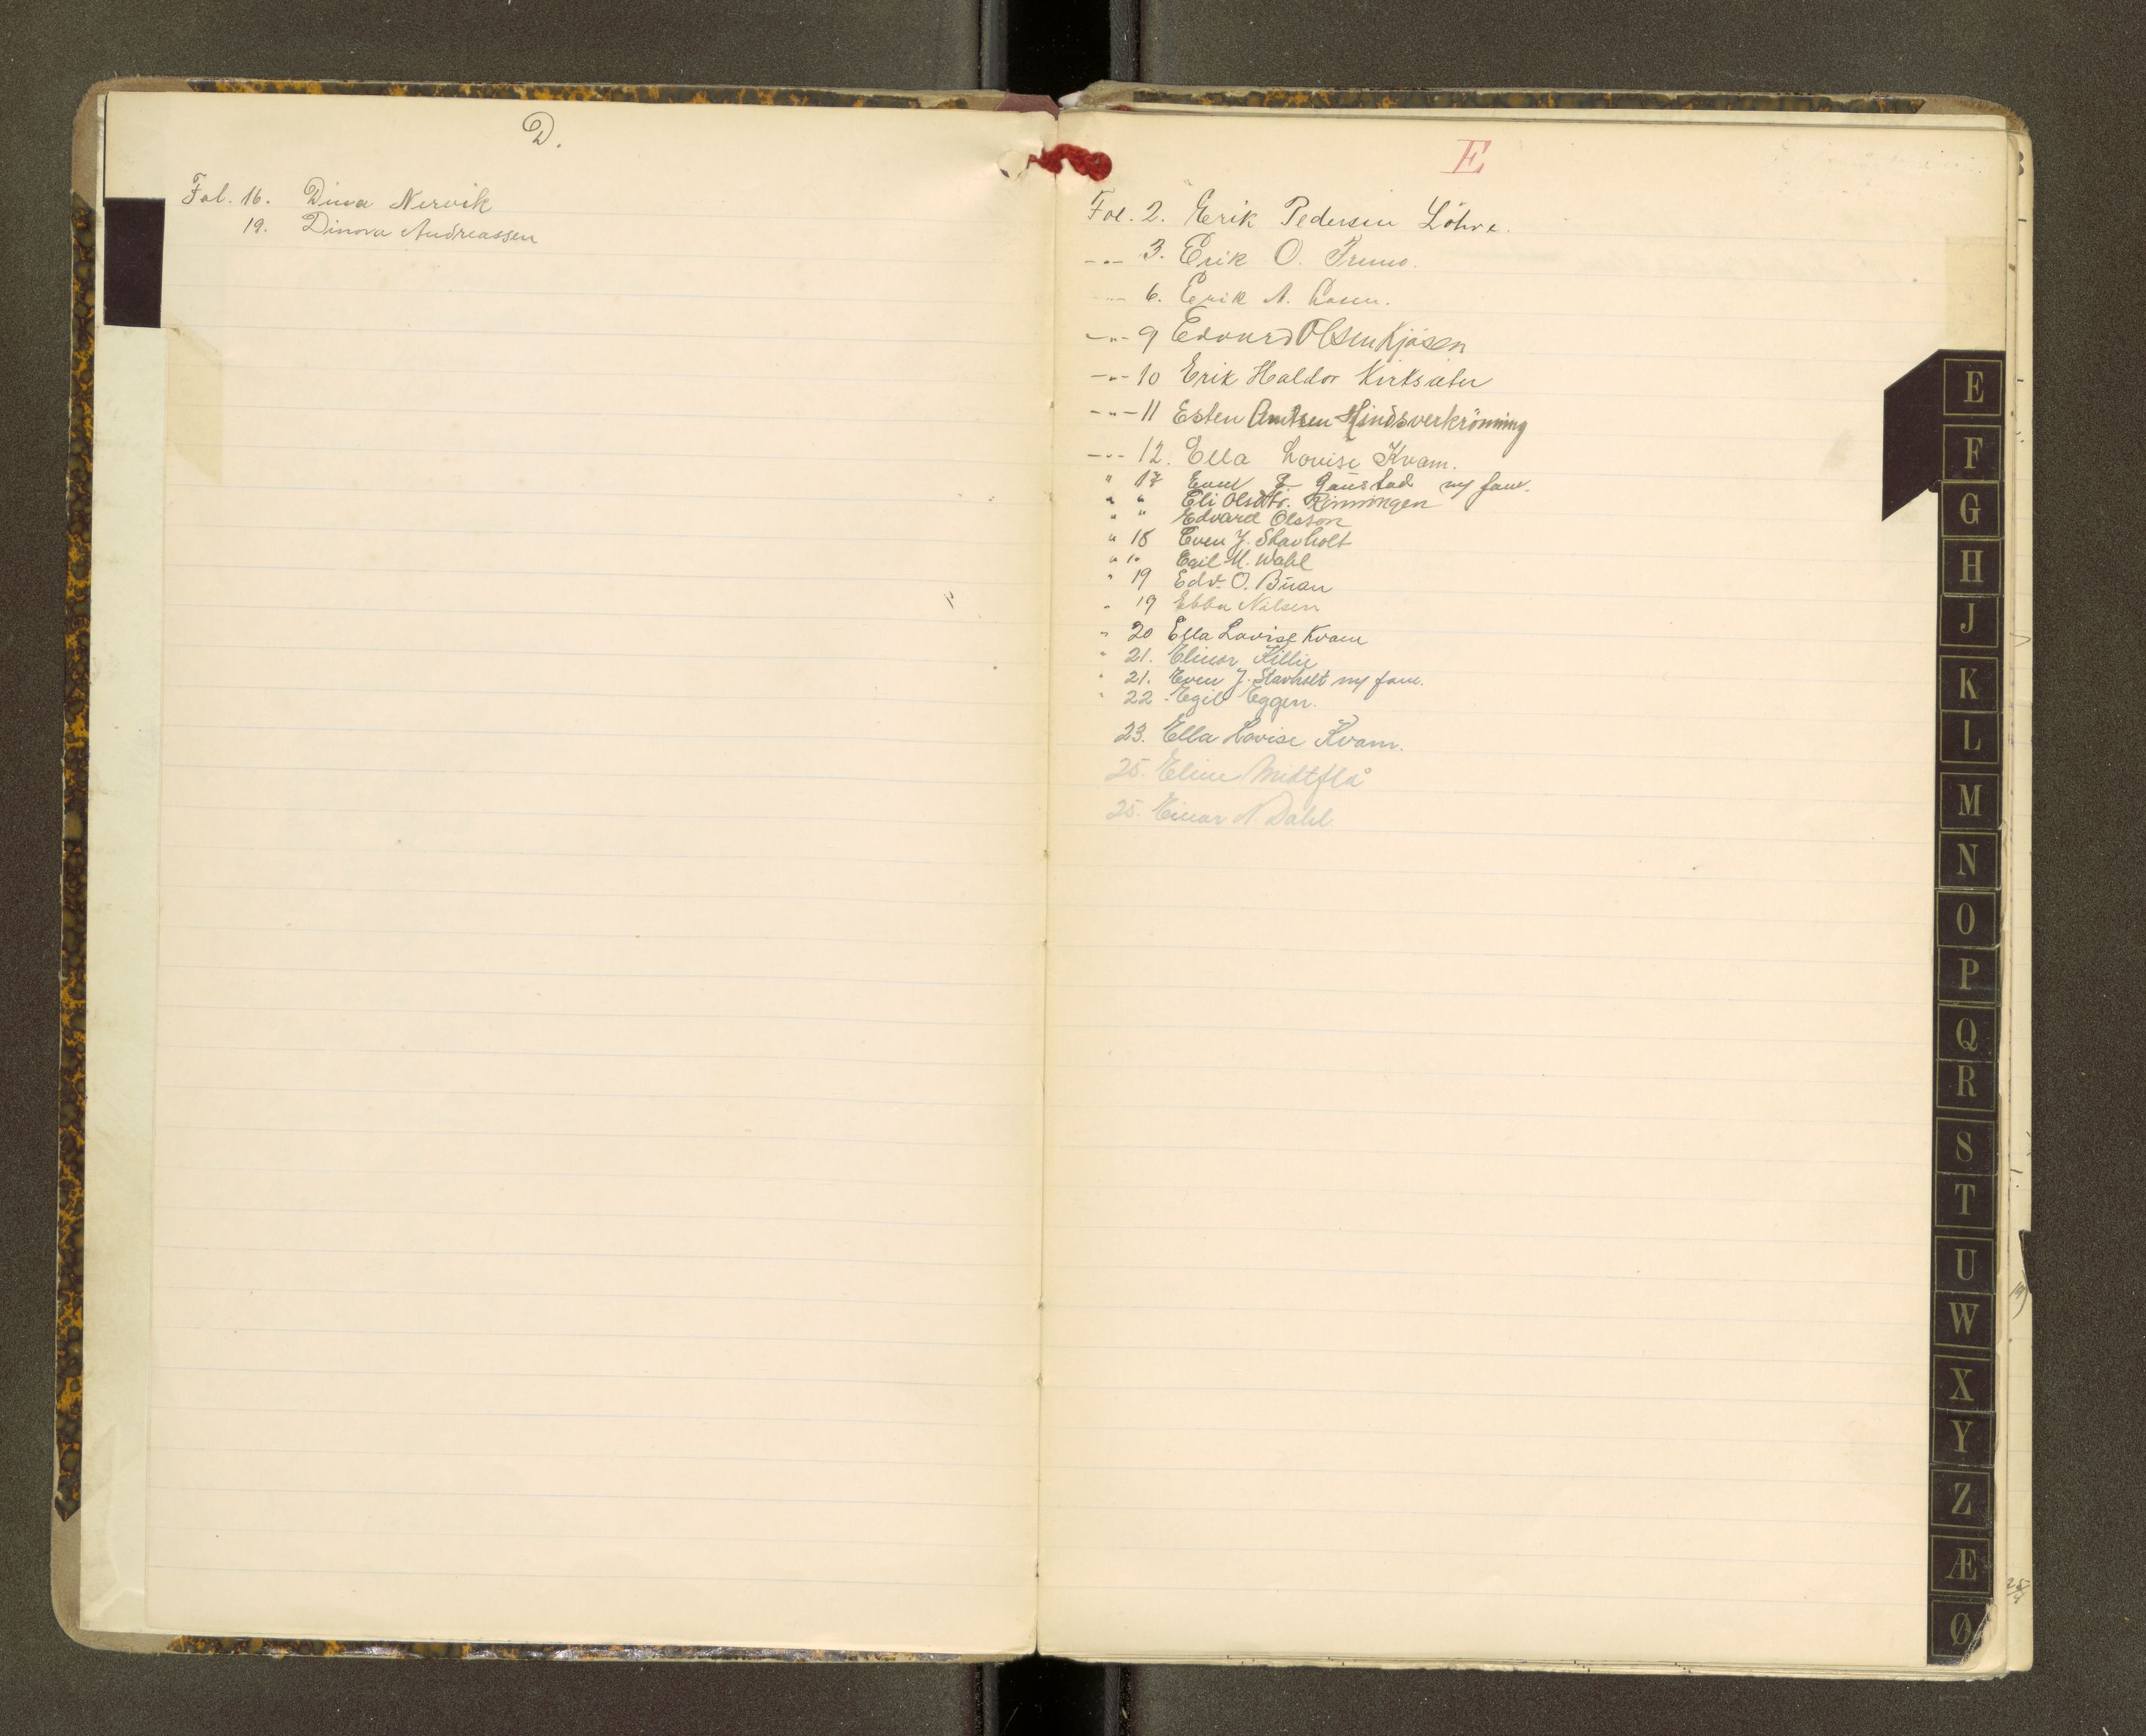 D.
Fol. 16. Dina Nervik
19. Dinora Andreassen
E
Fol. 2. Erik Pedersen Löhre.
-"- 3. Erik O.
-"- 6. Erik A.
-"- 9 Edvard Olsen Kjösen
-"- 10 Erik Haldor Kirksæter
-"- 11 Esten Amtsen Hindsverkrönning
-"- 12. Ella Lovise Kvam.
" 17 J. Gaustad ny fam.
" " Eli Olsdtr. Rönningen
" " Edvard Olsson
" 18 Even J. Stavholt
" " Egil M. Wahl
" 19 Edv. O. Buan
" 19 Ebba Nilsen
" 20 Ella Lovise Kvam
" 21. Elinor Killie
" 21. Even J. Stavholt ny fam.
" 22 Egil Eggen.
23. Ella Lovise Kvam.
25. Eline Midtflå
25. Einar A. Dahl
E
F
G
H
J
K
L
M
N
O
P
Q
R
S
T
U
W
X
Y
Z
Æ
Ø